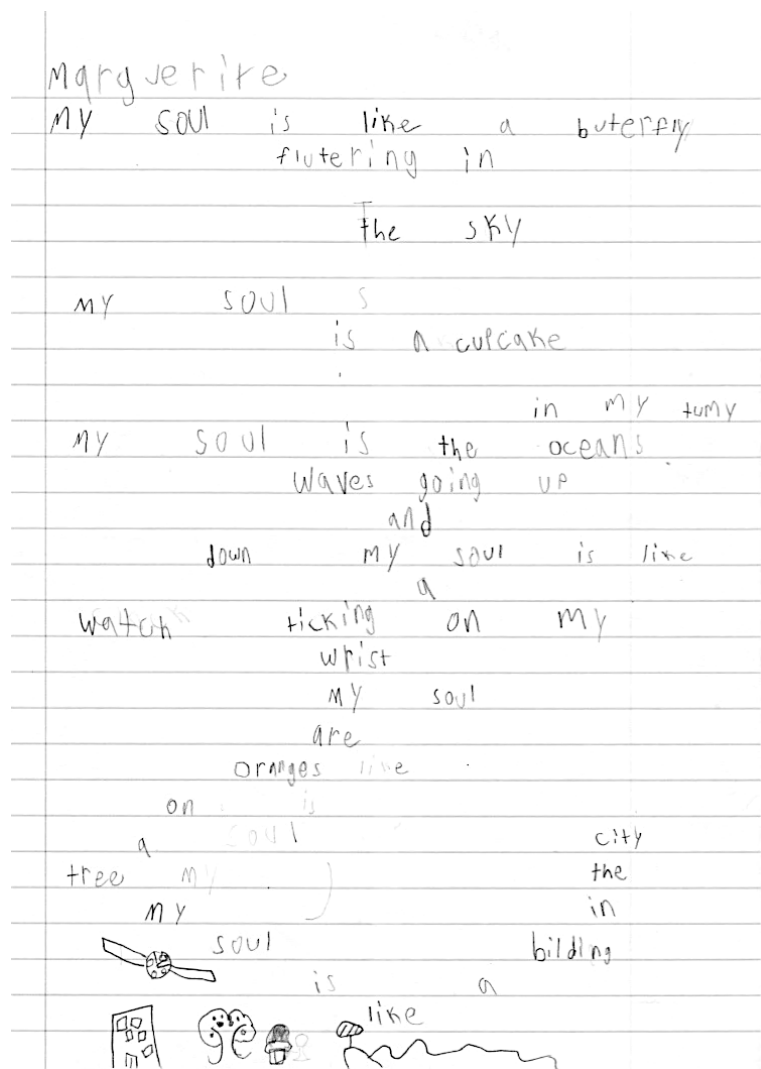 Marguerite
My soul is like a buterfly
flutering in
The sky
my soul s
is a cupcake
in my tumy
my soul is the oceans
waves going up
and
down my soul is like
a
watch ticking on my
wrist
my soul
are
oranges like
on is
a soul
tree my
my
soul
is a
like
bilding
in
the
city